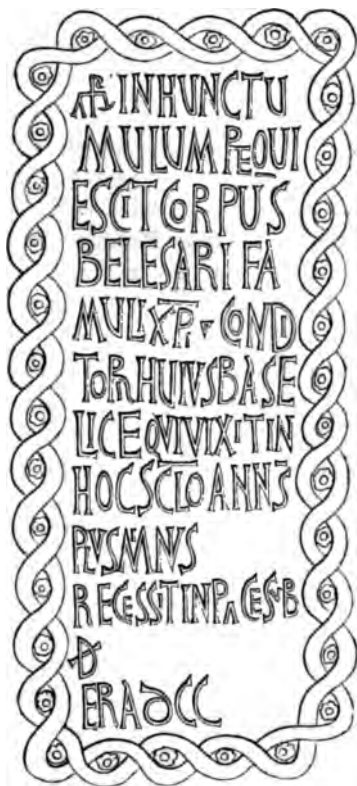 IN HUNC TU
MULUM REQUI
ESCIT CORPUS
BELESARI FA
MULI XPI CONDI
TOR HUIUS BASE
LICE QUI VIXIT IN
HOC SCLO ANNS
PLUS MNS
RECESSIT IN PACE SUB
D
ERA DCC